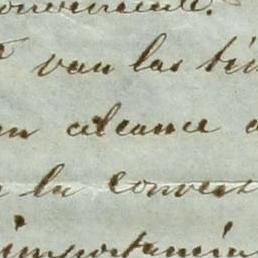 conveniente.
van las
alcance
la convers
importancia